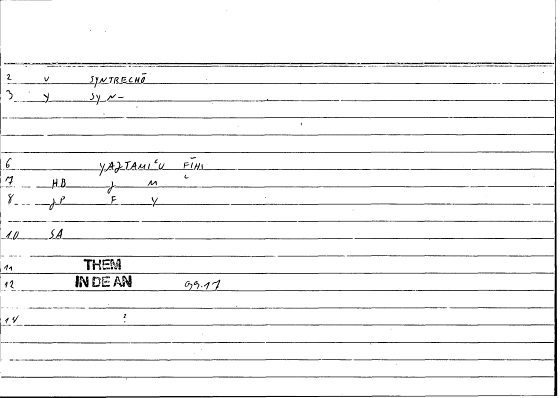 2 V SYNTRECHŌ
3 Y SYN-
6 YAJTAMIʿU FĪHI
7 HD J M ʿ
8 JP F Y
10 SA
11 THEM
12 IN DE AN 99.17
14 ?